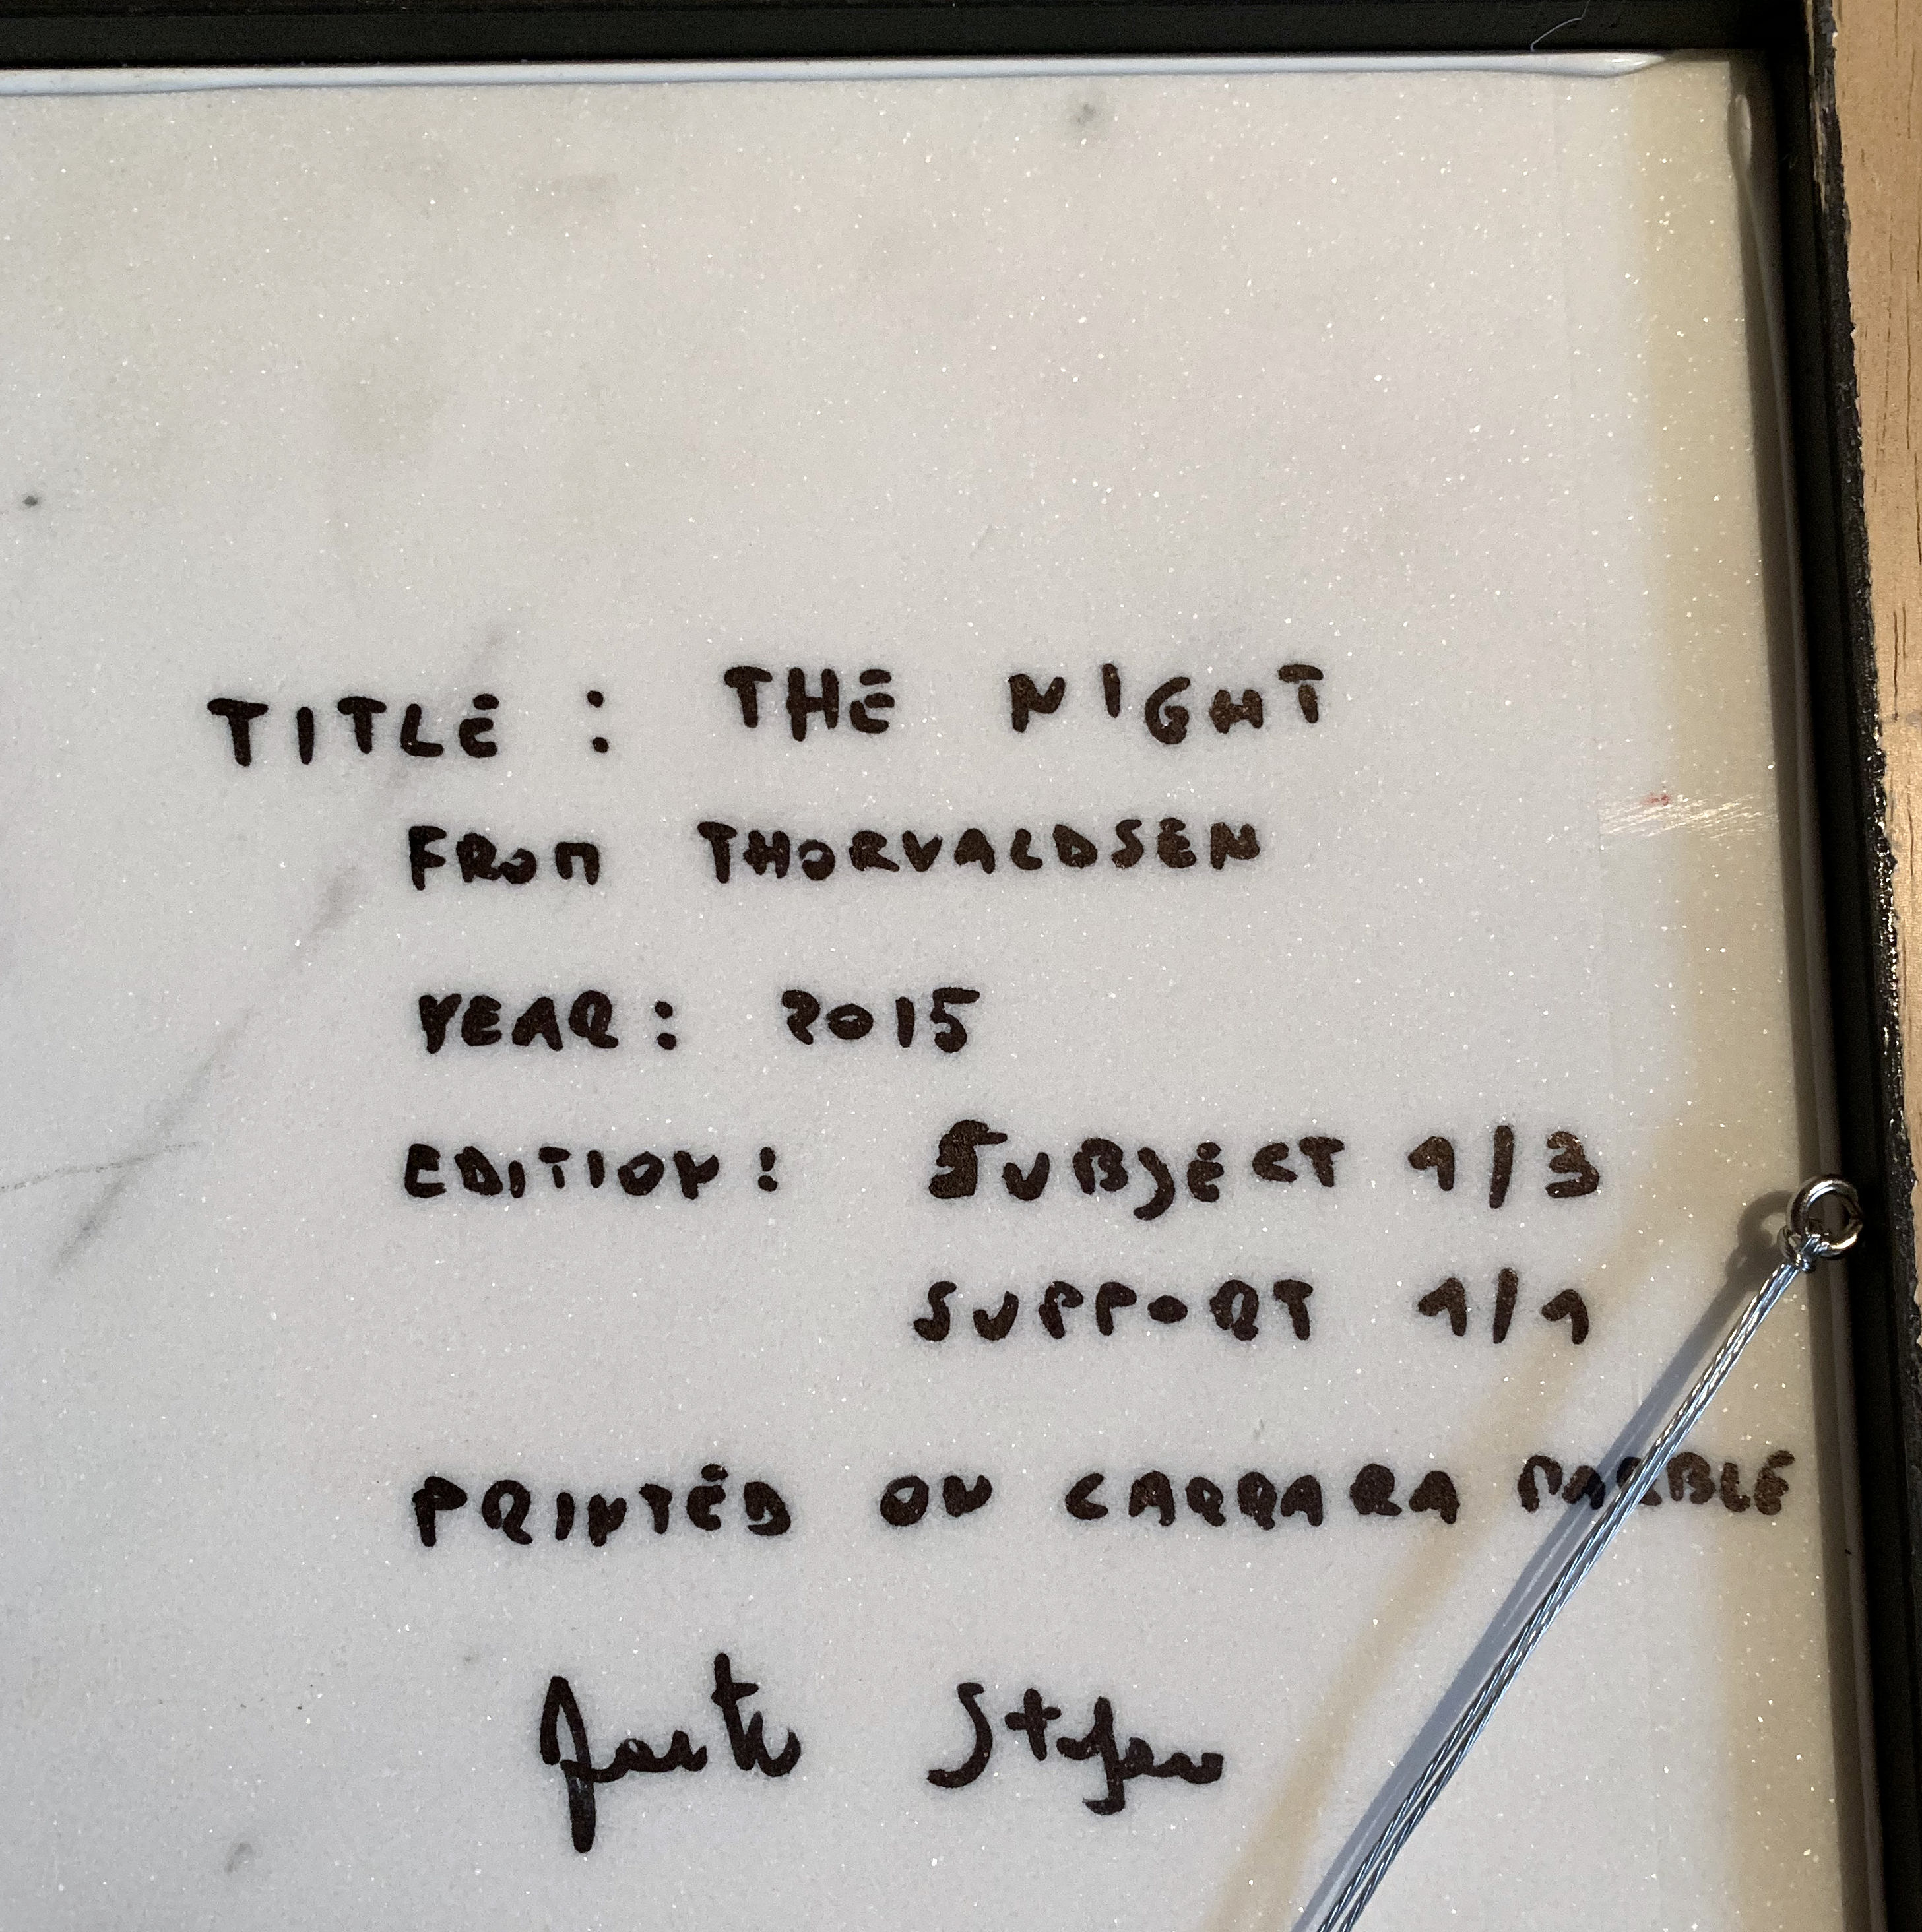 TITLE : THE NIGHT
FROM THORVALDSEN
YEAR : 2015
EDITION : SUBJECT 1/3
SUPPORT 1/1
PRINTED ON CARRARA MARBLE